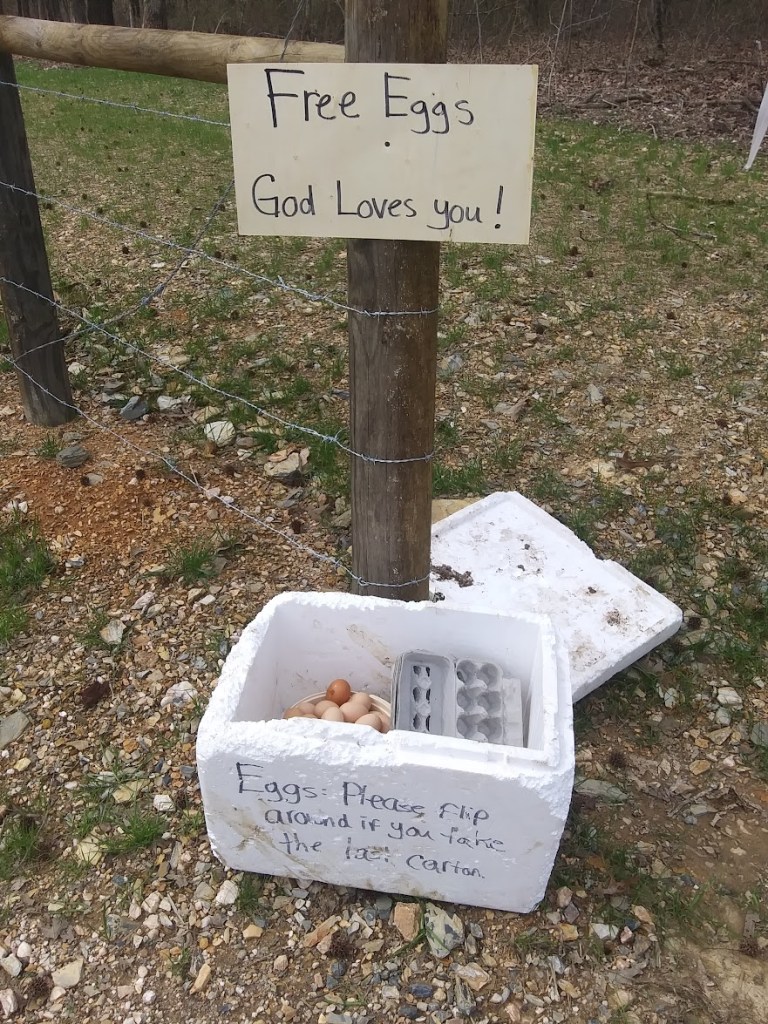 Free Eggs
God Loves you!
Eggs: Please flip
around if you take
the last carton.